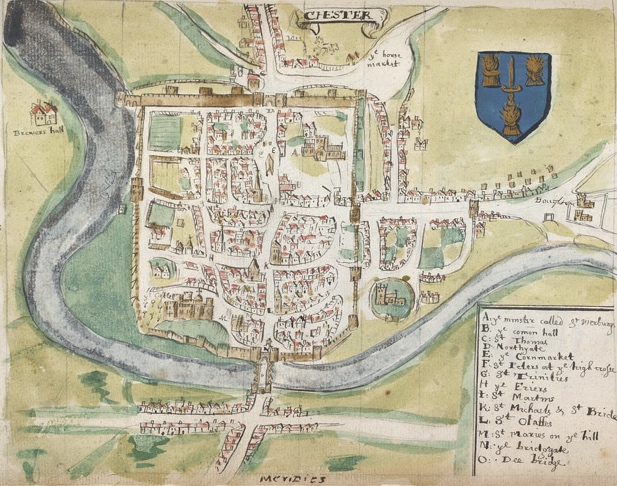 CHESTER
ye horse
market
Brewers hall
A: ye minster called St Werburgs
B: ye comon hall
C: St Thomas
D: Northgate
E: ye Cornmarket
F: St Peters at ye high crosse
G: St Trinities
H ye Friers
I: St Martins
K: St Michaels & St Bride
L: St Olaffes
M: St Maries on ye hill
N: ye bridggate
O: Dee bridge
MERIDIES